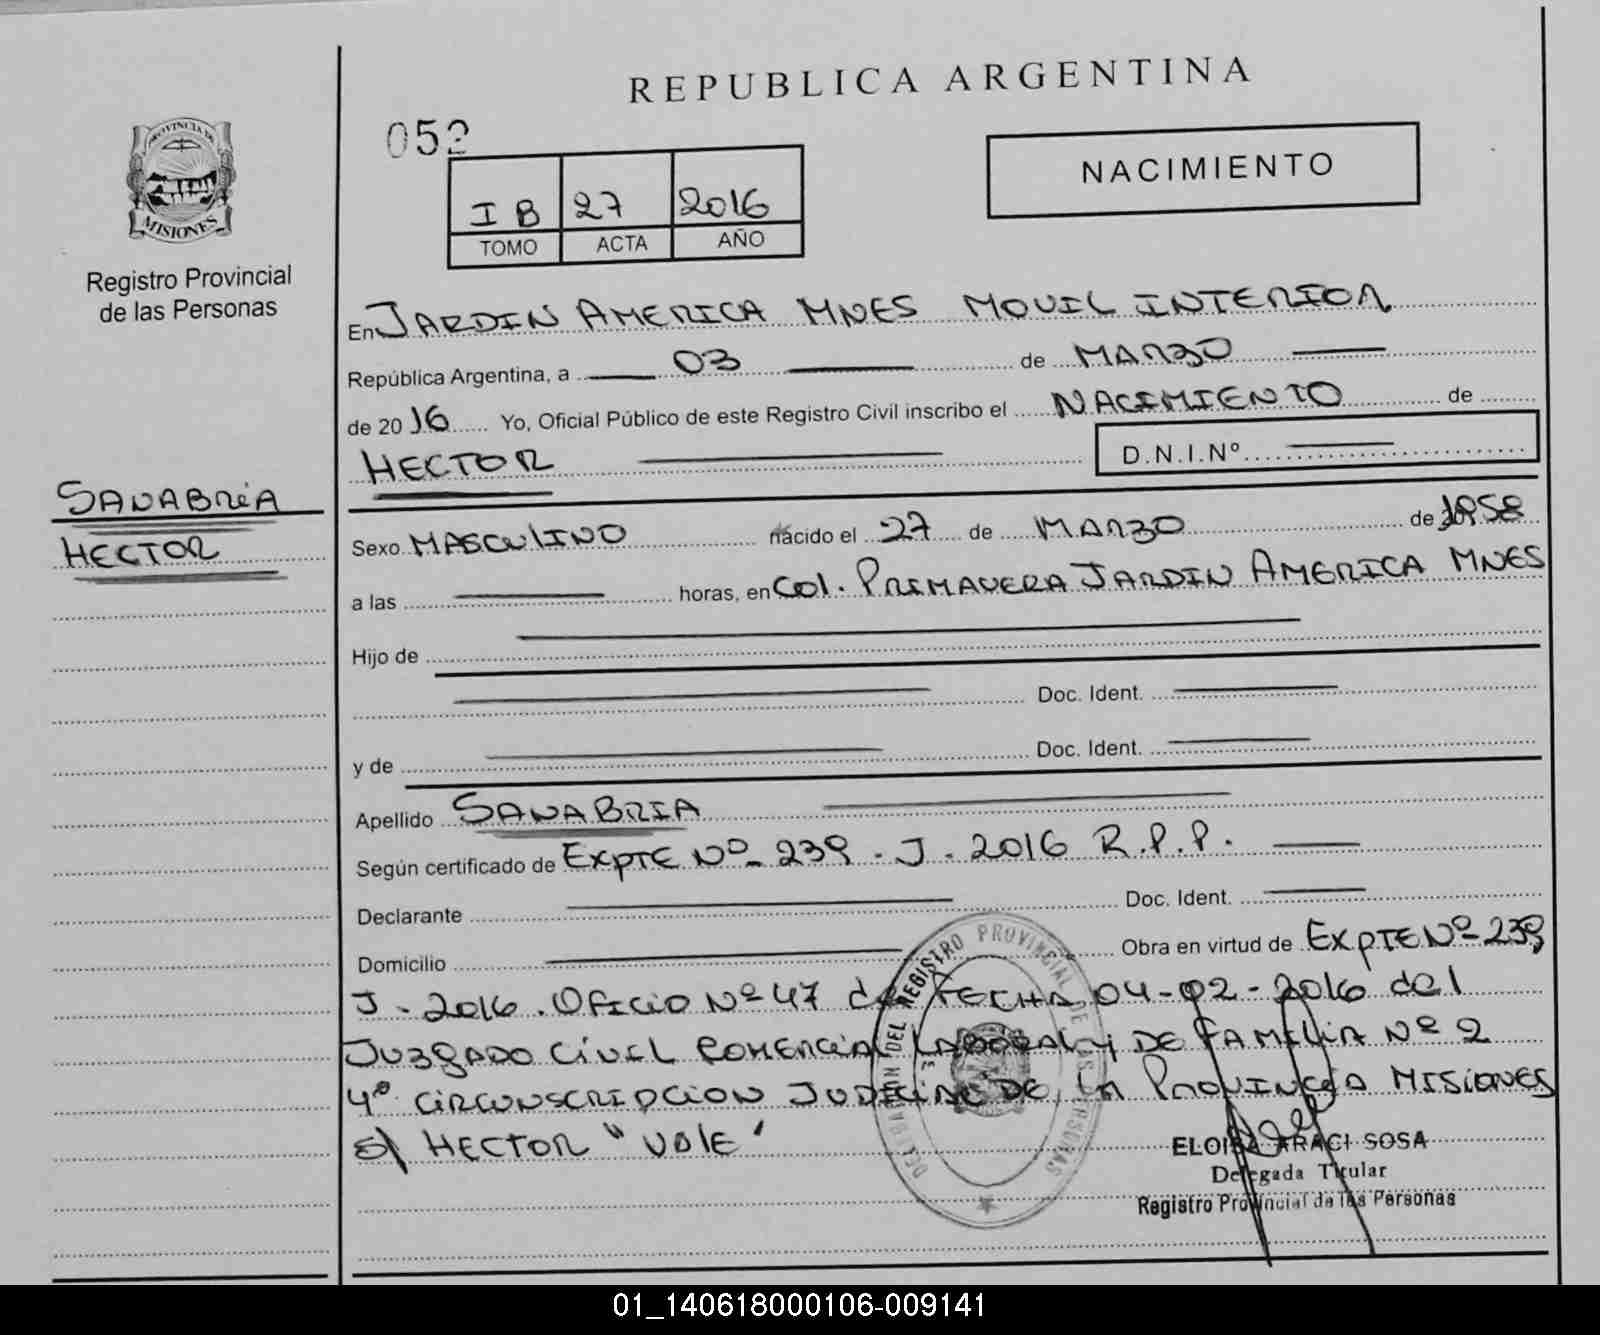 REPUBLICA ARGENTINA
052
PROVINCIA DE
MISIONES
Registro Provincial
de las Personas
I B 27 2016
TOMO ACTA AÑO
NACIMIENTO
En JARDIN AMERICA MNES MOVIL INTERIOR
República Argentina, a 03 de MARZO
de 2016 Yo, Oficial Público de este Registro Civil inscribo el NACIMIENTO de
HECTOR D.N.I.Nº
SANABRIA
HECTOR
Sexo MASCULINO nacido el 27 de MARZO de 1958
a las horas, en Col. PRIMAVERA JARDIN AMERICA MNES
Hijo de
Doc. Ident.
y de Doc. Ident.
Apellido SANABRIA
Según certificado de EXPTE Nº 239 - J - 2016 R.P.P.
Declarante Doc. Ident.
Domicilio Obra en virtud de EXPTE Nº 239
J - 2016. OFICIO Nº 47 de FECHA 04-02-2016 del
JUZGADO CIVIL COMERCIAL LABORAL y DE FAMILIA Nº 2
4º CIRCUNSCRIPCION JUDICIAL DE LA PROVINCIA MISIONES
S/ HECTOR "VALE"
DELEGACION DEL REGISTRO PROVINCIAL DE LAS PERSONAS
ELOISA ARACI SOSA
Delegada Titular
Registro Provincial de las Personas
01_140618000106-009141